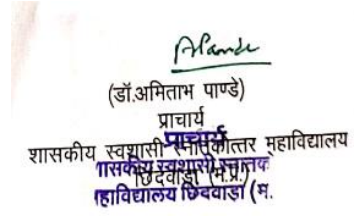 (डॉ.अमिताभ पाण्डे)
प्राचार्य
शासकीय स्वशासी स्नातकोत्तर महाविद्यालय
छिंदवाड़ा (म.प्र.)
प्राचार्य
शासकीय स्वशासी स्नातक
महाविद्यालय छिंदवाड़ा (म.